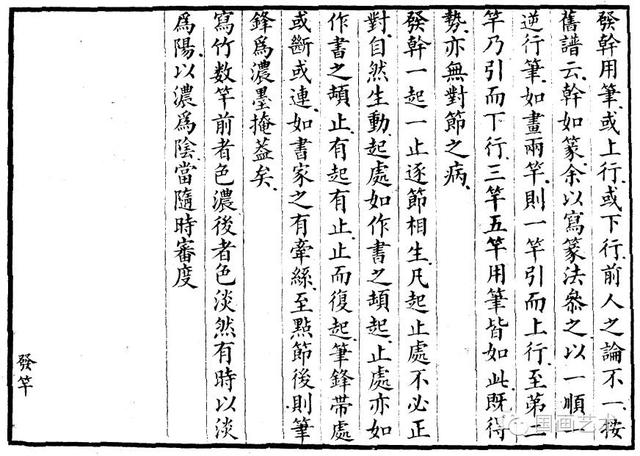 發幹用筆、或上行、或下行、前人之論不一、按
舊譜云、幹如篆、余以寫篆法叅之、以一順一
逆行筆、如畫兩竿、則一竿引而上行、至第二
竿乃引而下行、三竿五竿用筆皆如此、既得
勢、亦無對節之病、
發幹一起一止、逐節相生、凡起止處不必正
對、自然生動、起處如作書之頓起、止處亦如
作書之頓止、有起有止、止而復起、筆鋒帶處
或斷或連、如書家之有牽絲、至點節後、則筆
鋒爲濃墨掩葢矣、
寫竹数竿、前者色濃、後者色淡、然有時以淡
爲陽、以濃爲陰、當隨時審度
發竿
国画艺术